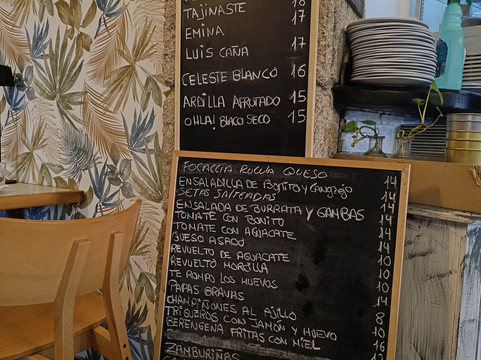 TAJINASTE 18
EMINA 17
LUIS CAÑA 17
CELESTE BLANCO 16
ARDILLA AFRUTADO 15
OHLA! BLACO SECO 15
FOCACCIA RUCULA QUESO 14
ENSALADILLA DE BONITO Y CANGREJO 14
SETAS SALTEADAS 14
ENSALADA DE BURRATA Y GAMBAS 14
TOMATE CON BONITO 14
TOMATE CON AGUACATE 14
QUESO ASADO 10
REVUELTO DE AGUACATE 10
REVUELTO MORCILLA 10
TE ROMPO LOS HUEVOS 14
PAPAS BRAVAS 8
CHAMPIÑONES AL AJILLO 10
TRIGUEROS CON JAMÓN Y HUEVO 10
BERENGENA FRITAS CON MIEL
ZAMBURIÑAS